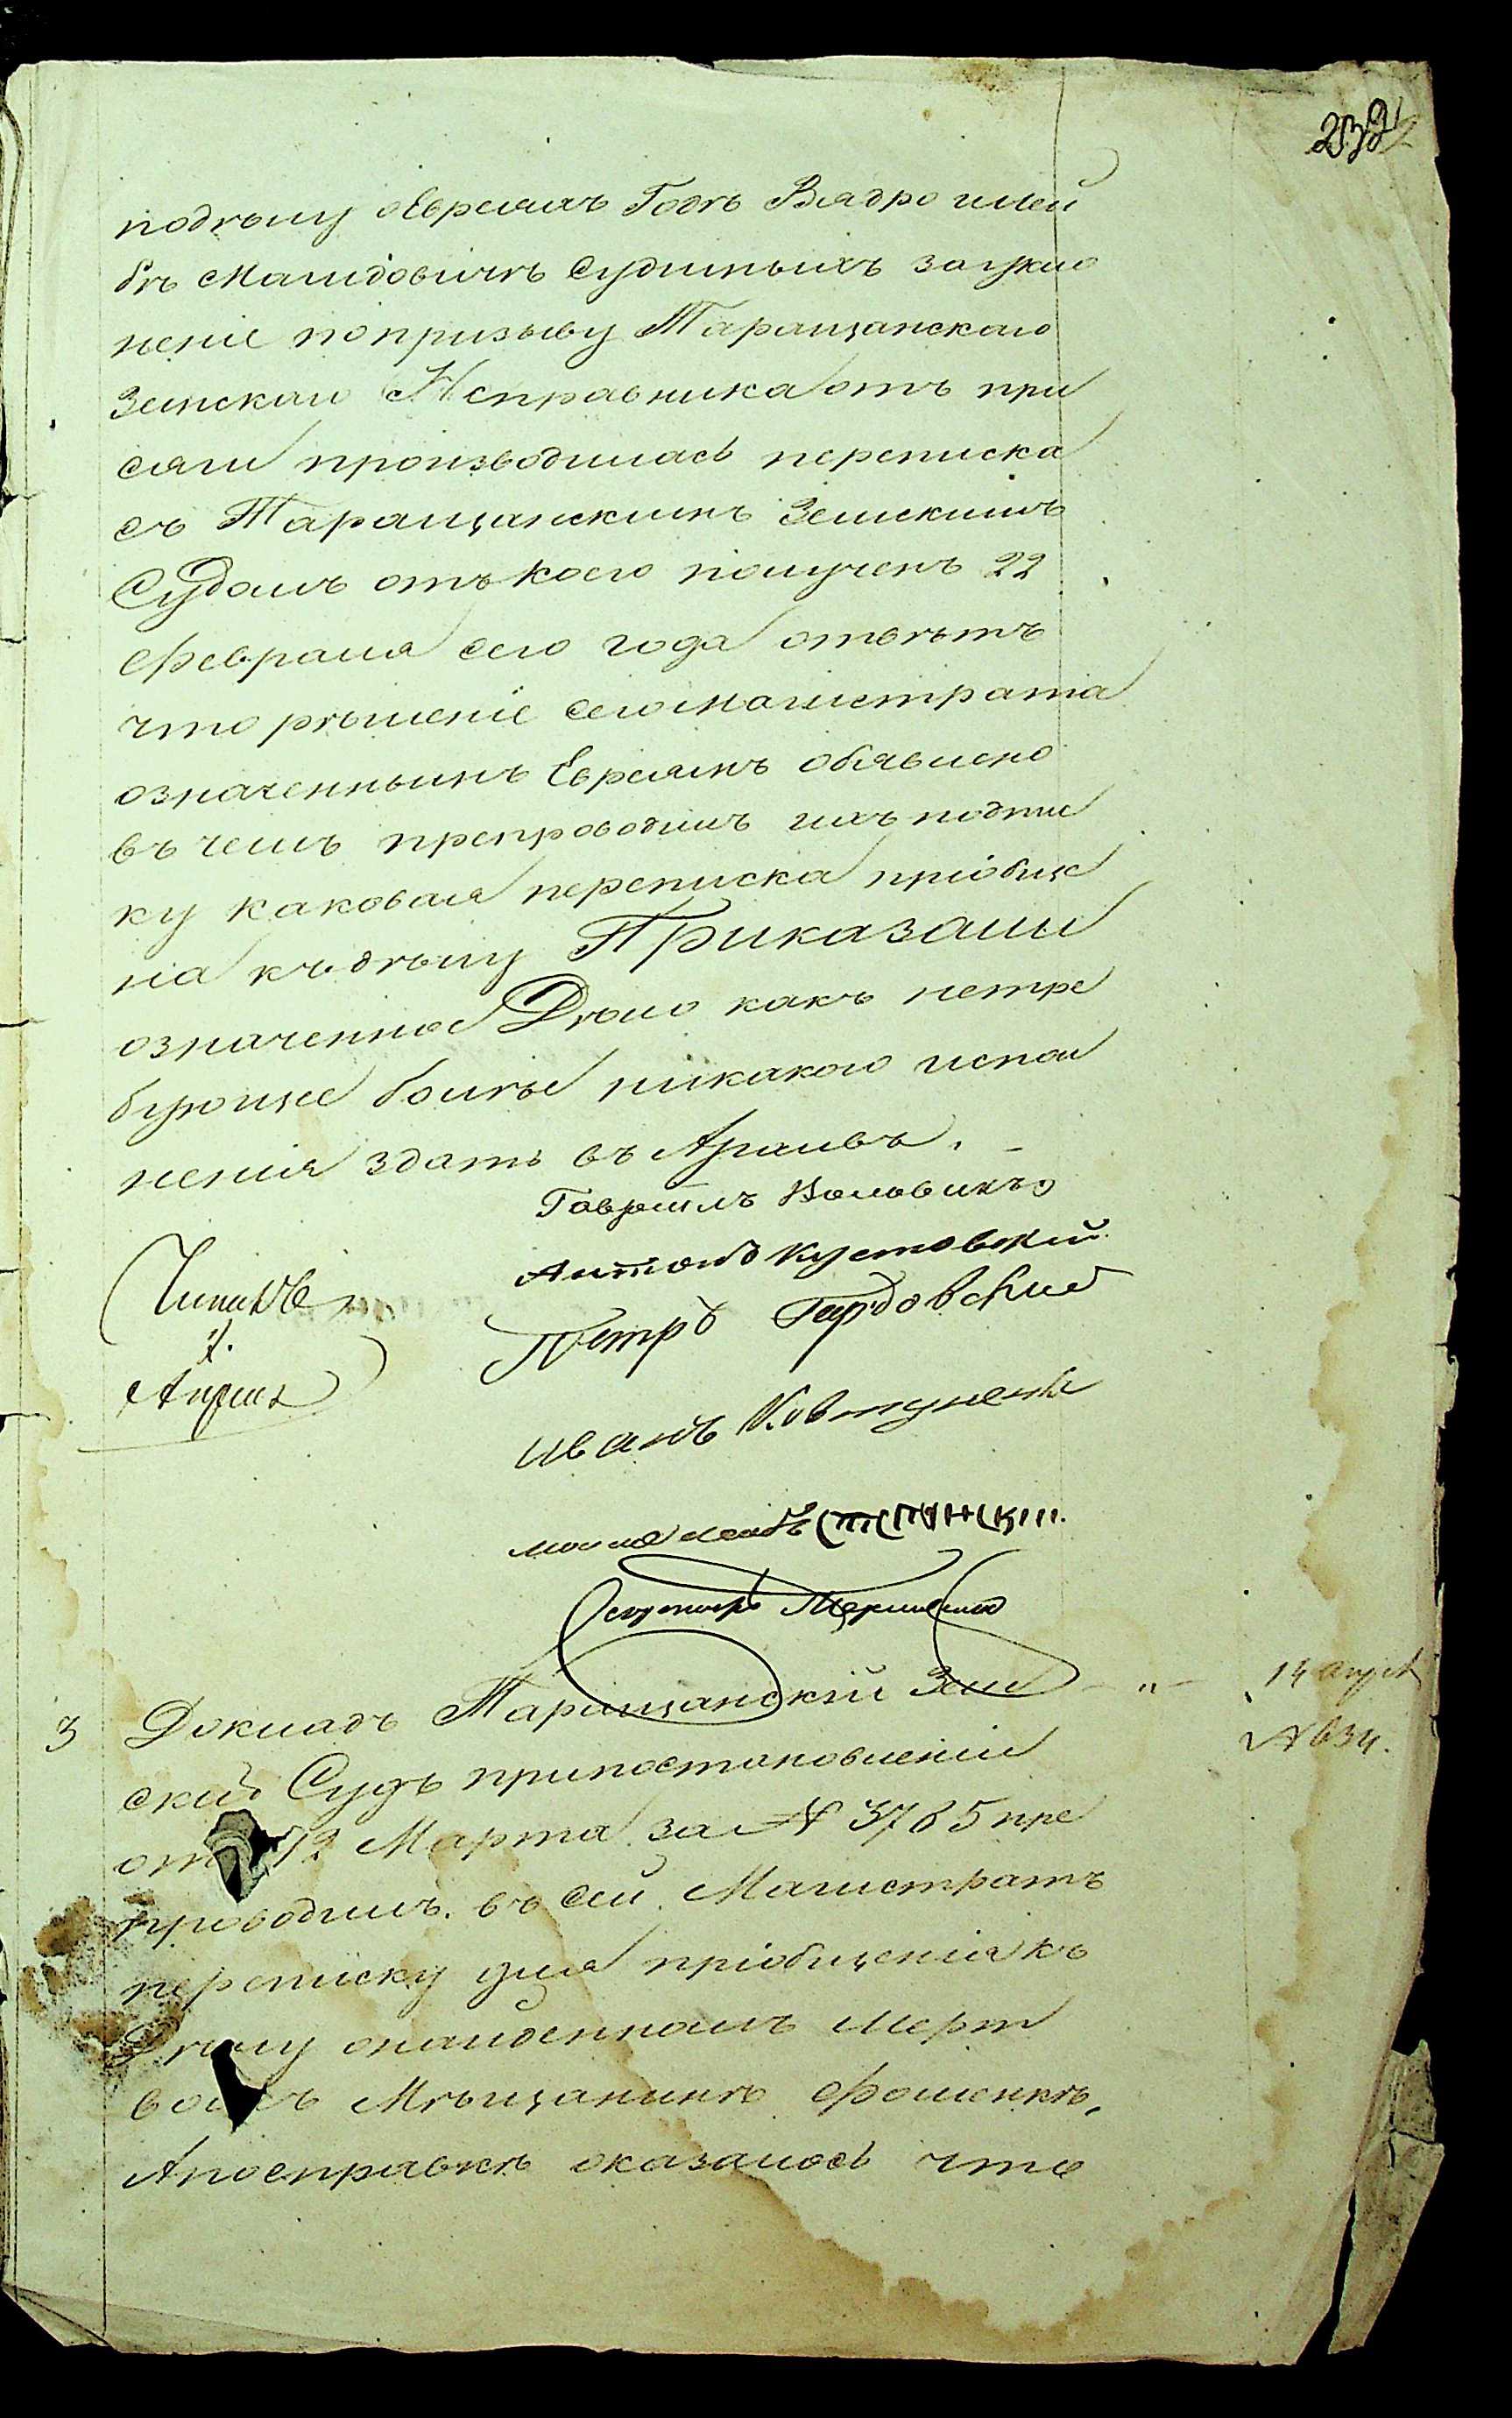 232
подѣлу о Евреяхъ Годѣ Вядро илей
бѣ Малидовичѣ судимыхъ за укло
неніе по призыву Таращанскаго
Земскаго Исправника отъ при
сяги производилась переписка
съ Таращанскимъ Земскимъ
Судомъ отъ коего полученъ 22
февраля сего года отвѣтъ
что рѣшеніе сего Магистрата
означеннымъ Евреямъ обявлено
въ чемъ препроводилъ ихъ подпи
ку каковая переписка пріобще
на къ дѣлу Приказали
означенное Дѣло какъ нетре
бующее болѣе никакого испол
ненія здать въ Архивъ.
Гавріилъ
Антонъ Кустовскій
Петръ Гардовскій
Иванъ Ковтуненко
Секретарь
Апреля
3 Докладъ Таращанскій Зем
скій Судъ припостановленіи
отъ 12 Марта за № 3765 пре
проводилъ въ сей Магистратъ
переписку для пріобщенія къ
Дѣлу онайденномъ мерт
вомъ Мѣщанинѣ Фоменкѣ,
Апосправкѣ оказалось что
14
№ 634.